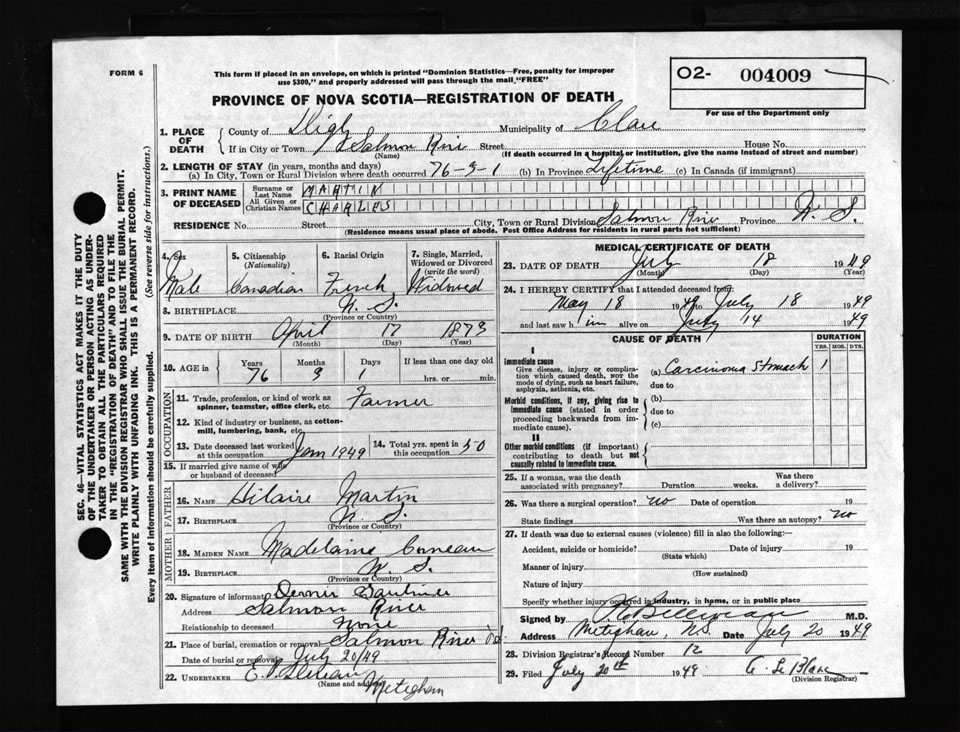 FORM 6
This form if placed in an envelope, on which is printed "Dominion Statistics—Free, penalty for improper
use $300," and properly addressed will pass through the mail "FREE"
O2- 004009
For use of the Department only
PROVINCE OF NOVA SCOTIA—REGISTRATION OF DEATH
1. PLACE OF DEATH
County of Digby Municipality of Clare
If in City or Town Salmon River Street House No.
(Name) (If death occurred in a hospital or institution, give the name instead of street and number)
2. LENGTH OF STAY (in years, months and days)
(a) In City, Town or Rural Division where death occurred 76-3-1 (b) In Province Lifetime (c) In Canada (if immigrant)
3. PRINT NAME OF DECEASED
Surname or Last Name MARTIN
All Given or Christian Names CHARLES
RESIDENCE No. Street City, Town or Rural Division Salmon River Province N. S.
(Residence means usual place of abode. Post Office Address for residents in rural parts not sufficient)
4. Sex Male
5. Citizenship (Nationality) Canadian
6. Racial Origin French
7. Single, Married, Widowed or Divorced (write the word) Widowed
8. BIRTHPLACE N. S.
(Province or Country)
9. DATE OF BIRTH April 17 1873
(Month) (Day) (Year)
10. AGE in Years 76 Months 3 Days 1 If less than one day old hrs. or min.
OCCUPATION
11. Trade, profession, or kind of work as spinner, teamster, office clerk, etc. Farmer
12. Kind of industry or business, as cotton-mill, lumbering, bank, etc.
13. Date deceased last worked at this occupation Jan 1949
14. Total yrs. spent in this occupation 50
15. If married give name of wife or husband of deceased
FATHER
16. NAME Hilaire Martin
17. BIRTHPLACE N. S.
(Province or Country)
MOTHER
18. MAIDEN NAME Madelaine Comeau
19. BIRTHPLACE N. S.
(Province or Country)
20. Signature of informant
Address Salmon River
Relationship to deceased None
21. Place of burial, cremation or removal Salmon River
Date of burial or removal July 20/49
22. UNDERTAKER
(Name and address) Meteghan
MEDICAL CERTIFICATE OF DEATH
23. DATE OF DEATH July 18 1949
(Month) (Day) (Year)
24. I HEREBY CERTIFY that I attended deceased from:
May 18 1949 to July 18 1949
and last saw him alive on July 14 1949
CAUSE OF DEATH
DURATION
YRS. MOS. DYS.
I
Immediate cause
Give disease, injury or complication which caused death, NOT the mode of dying, such as heart failure, asphyxia, asthenia, etc.
(a) Carcinoma Stomach 1
due to
Morbid conditions, if any, giving rise to immediate cause (stated in order proceeding backwards from immediate cause).
(b)
due to
(c)
II
Other morbid conditions (if important) contributing to death but not causally related to immediate cause.
25. If a woman, was the death associated with pregnancy? Duration weeks. Was there a delivery?
26. Was there a surgical operation? no Date of operation 19
State findings Was there an autopsy? no
27. If death was due to external causes (violence) fill in also the following:—
Accident, suicide or homicide? Date of injury 19
(State which)
Manner of injury
(How sustained)
Nature of injury
Specify whether injury occurred in industry, in home, or in public place
Signed by M.D.
Address Meteghan, N.S. Date July 20 1949
28. Division Registrar's Record Number 12
29. Filed July 20th 1949 LeBlanc
(Division Registrar)
SEC. 46—VITAL STATISTICS ACT MAKES IT THE DUTY
OF THE UNDERTAKER OR PERSON ACTING AS UNDER-
TAKER TO OBTAIN ALL THE PARTICULARS REQUIRED
IN THE "REGISTRATION OF DEATH" AND TO FILE THE
SAME WITH THE DIVISION REGISTRAR WHO SHALL ISSUE THE BURIAL PERMIT.
WRITE PLAINLY WITH UNFADING INK. THIS IS A PERMANENT RECORD.
Every item of information should be carefully supplied. (See reverse side for instructions.)